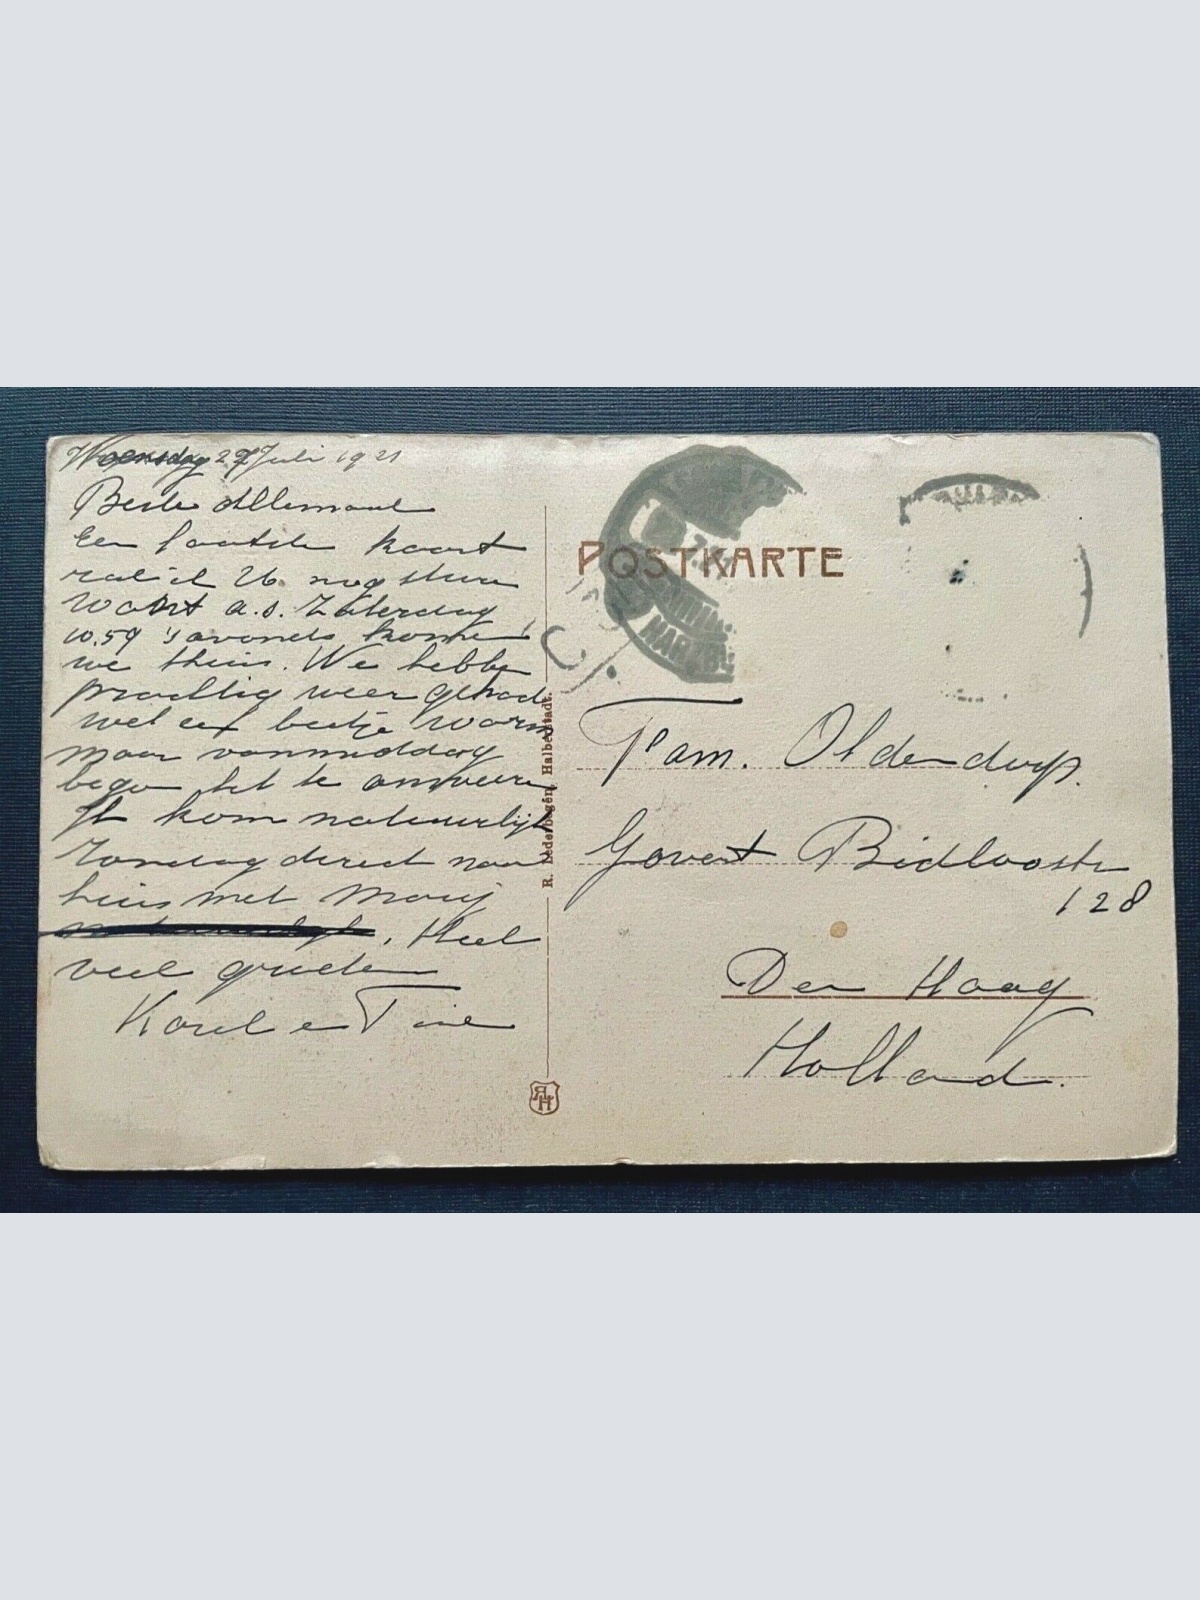 Woensdag 27 Juli 1921
Beste Allemaal
Een laatste kaart
zal ik U nog sturen
want a.s. Zaterdag
10.59 's avonds komen
we thuis. We hebben
prachtig weer gehad
wel een beetje warm
maar vanmiddag
begon het te onweeren
Ik kom natuurlijk
Zondag direct naar
huis met Marij
. Heel
veel groeten
Karel en Tine
R. Lederbogen, Halberstadt.
RLH
POSTKARTE
Fam. Oldendorp.
Govert Bidloostr
128
Den Haag
Holland.